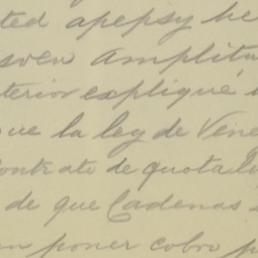 apepsy he
amplitu
terior expliqué
que la ley de Vene
contrato de quota
de que Cadenas
poner cobro p